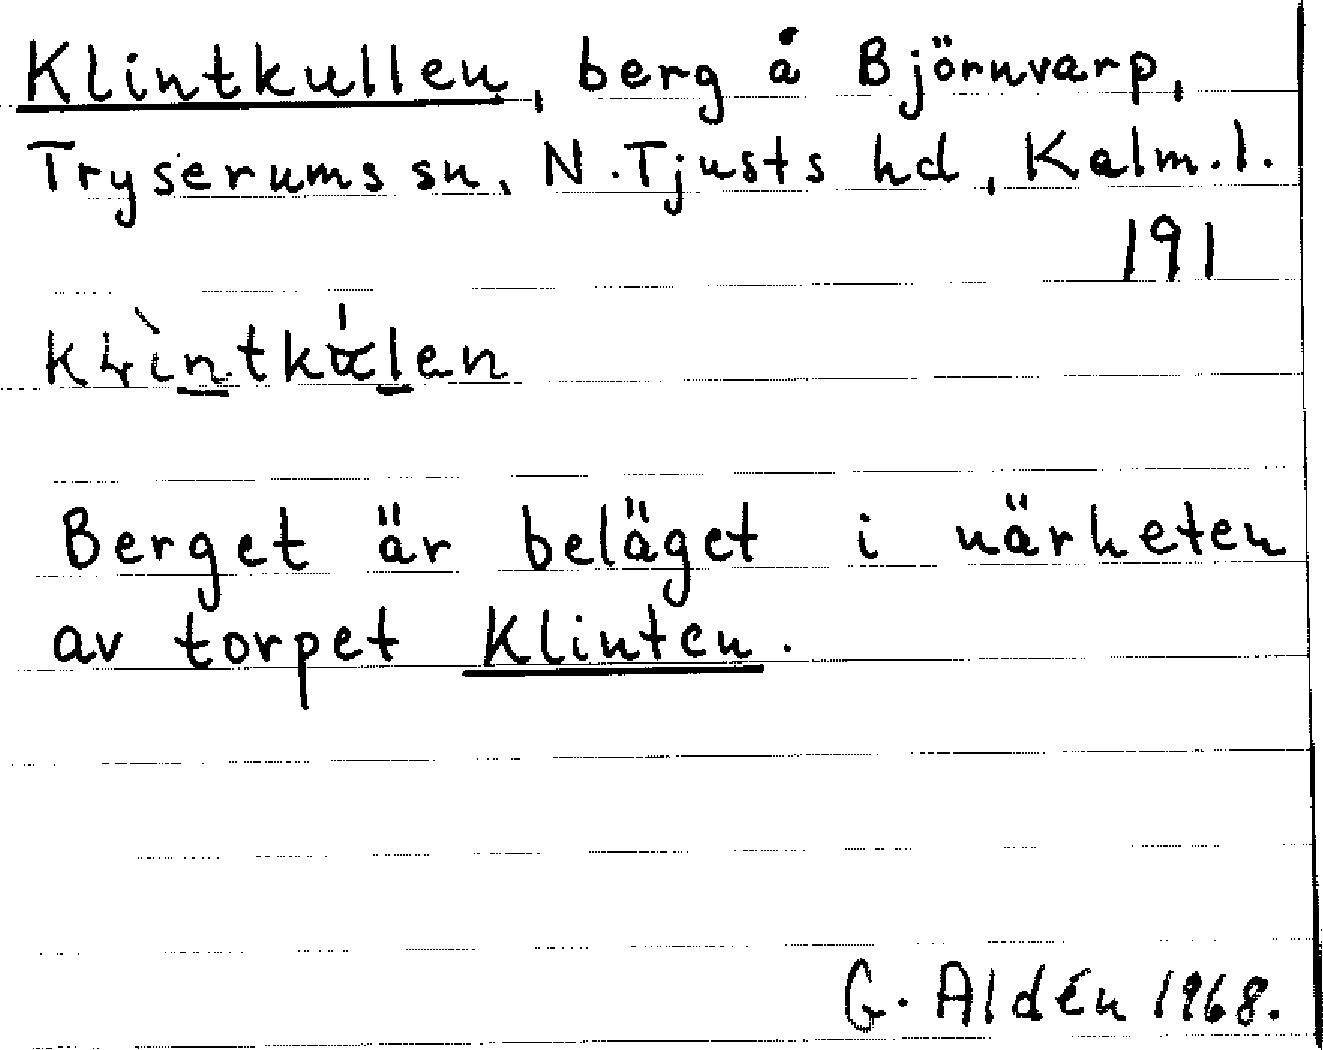 Klintkullen, berg å Björnvarp,
Tryserums sn, N. Tjusts hd, Kalm. l.
191
Berget är beläget i närheten
av torpet Klinten.
G. Aldén 1968.